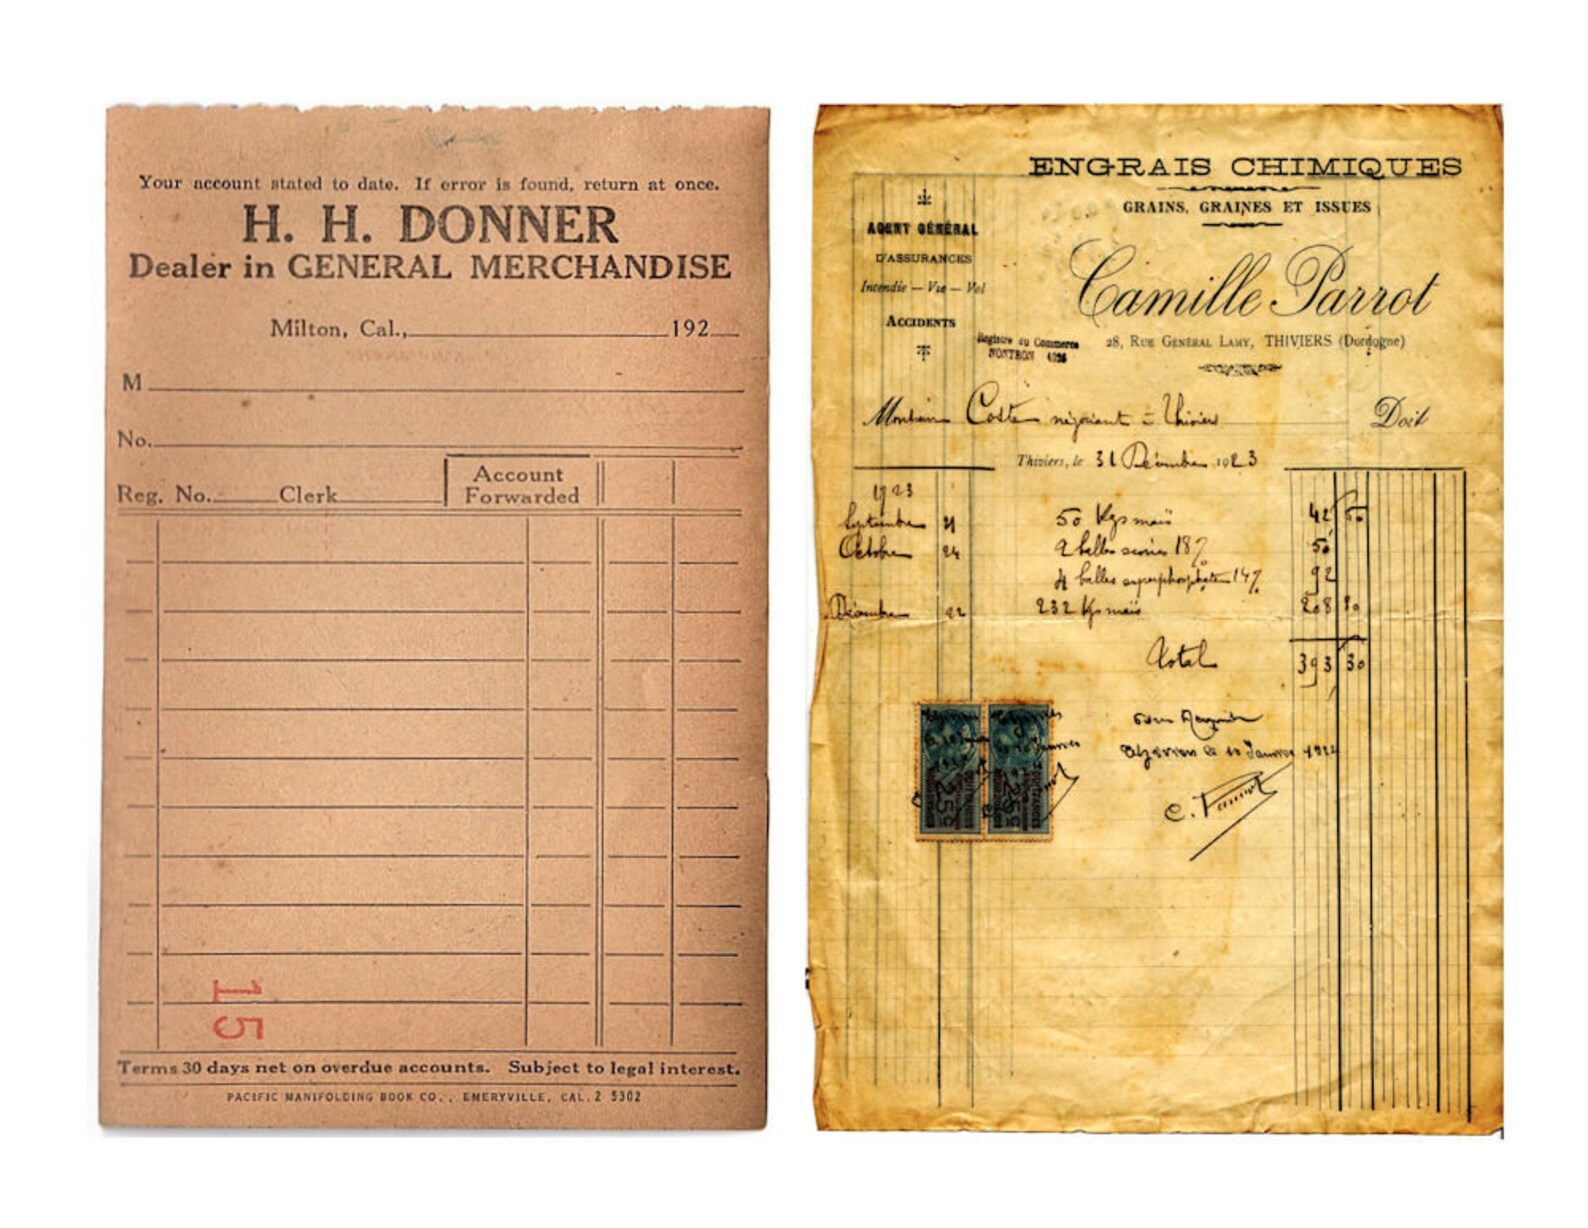 Your account stated to date. If error is found, return at once.
H. H. DONNER
Dealer in GENERAL MERCHANDISE
Milton, Cal., 192
M
No.
Reg. No. Clerk Account Forwarded
15
Terms 30 days net on overdue accounts. Subject to legal interest.
PACIFIC MANIFOLDING BOOK CO., EMERYVILLE, CAL. 2 5302
ENGRAIS CHIMIQUES
GRAINS, GRAINES ET ISSUES
AGENT GÉNÉRAL
D'ASSURANCES
Incendie — Vie — Vol
ACCIDENTS
Camille Parrot
28, RUE GÉNÉRAL LAMY, THIVIERS (Dordogne)
Registre du Commerce
NONTRON 4226
Monsieur Coste négociant à Thiviers Doit
Thiviers, le 31 Décembre 1923
1923
Septembre 21 50 Kgs maïs 42 50
Octobre 24 2 balles scories 18% 50
4 balles superphosphate 14% 92
Décembre 22 232 Kgs maïs 208 80
Total 393 30
le 10 Janvier 1924
C. Parrot